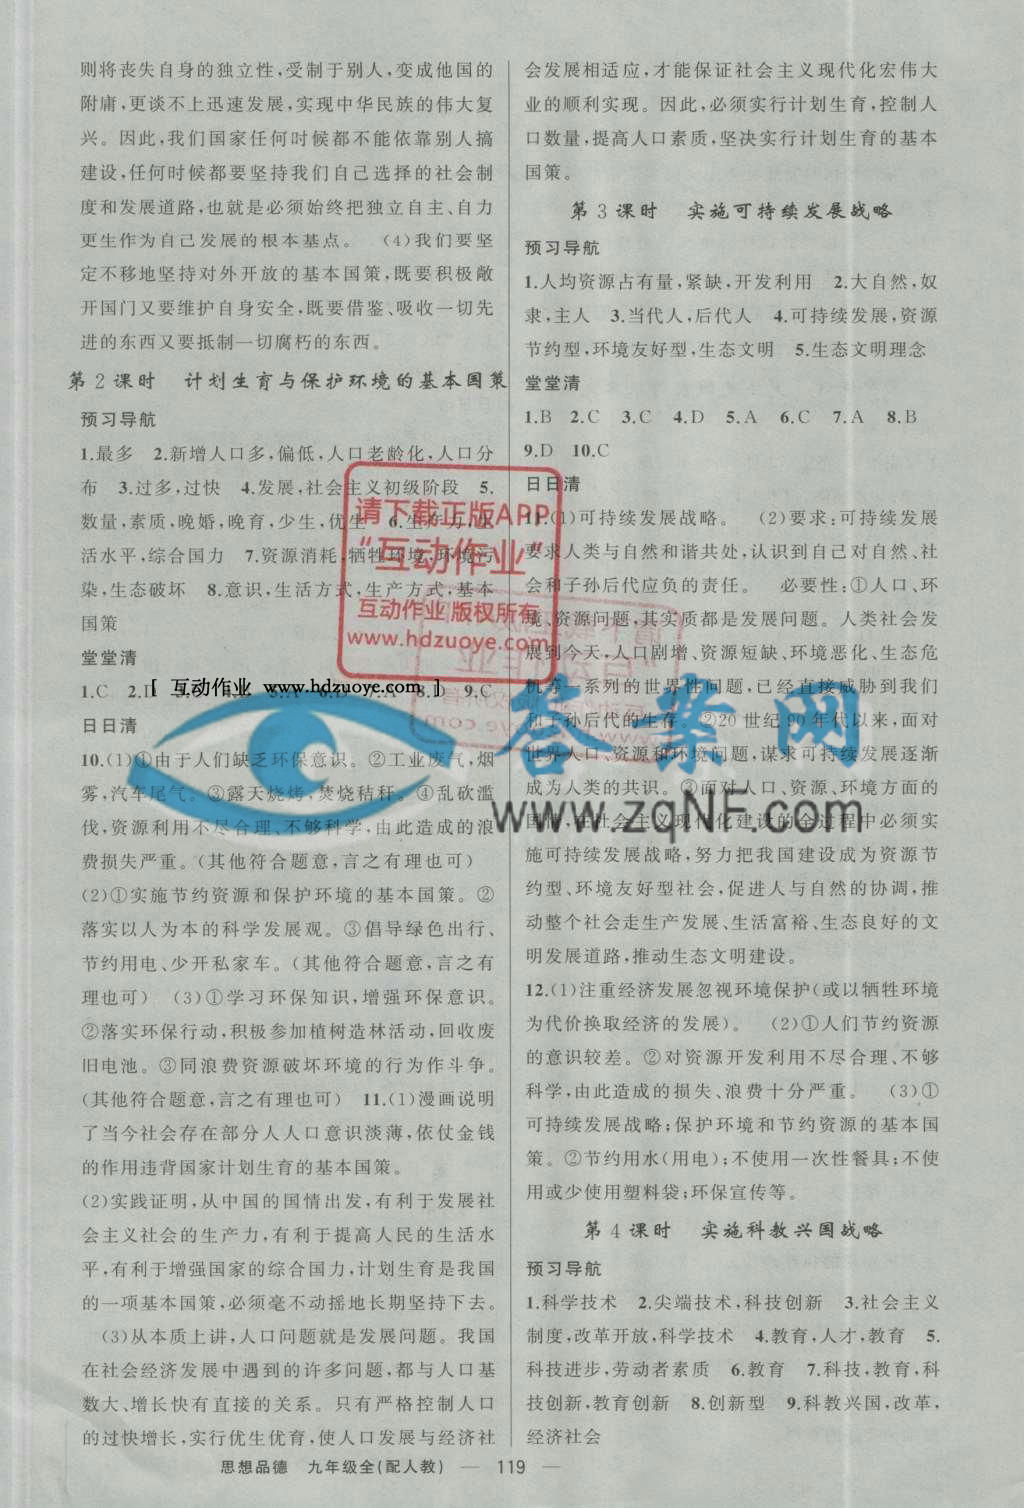 则将丧失自身的独立性,受制于别人,变成他国的
附庸,更谈不上迅速发展,实现中华民族的伟大复
兴。因此,我们国家任何时候都不能依靠别人搞
建设,任何时候都要坚持我们自己选择的社会制
度和发展道路,也就是必须始终把独立自主、自力
更生作为自己发展的根本基点。 (4)我们要坚
定不移地坚持对外开放的基本国策,既要积极敞
开国门又要维护自身安全,既要借鉴、吸收一切先
进的东西又要抵制一切腐朽的东西。
第 2 课时 计划生育与保护环境的基本国策
预习导航
1.最多 2.新增人口多,偏低,人口老龄化,人口分
布 3.过多,过快 4.发展,社会主义初级阶段 5.
数量,素质,晚婚,晚育,少生,优生 6.生产力,生
活水平,综合国力 7.资源消耗,牺牲环境,环境污
染,生态破坏 8.意识,生活方式,生产方式,基本
国策
堂堂清
1.C 2.D 8.D 9.C
日日清
10.(1)①由于人们缺乏环保意识。②工业废气,烟
雾,汽车尾气。③露天烧烤,焚烧秸秆。④乱砍滥
伐,资源利用不尽合理、不够科学,由此造成的浪
费损失严重。(其他符合题意,言之有理也可)
(2)①实施节约资源和保护环境的基本国策。②
落实以人为本的科学发展观。③倡导绿色出行、
节约用电、少开私家车。(其他符合题意,言之有
理也可) (3)①学习环保知识,增强环保意识。
②落实环保行动,积极参加植树造林活动,回收废
旧电池。③同浪费资源破坏环境的行为作斗争。
(其他符合题意,言之有理也可) 11.(1)漫画说明
了当今社会存在部分人人口意识淡薄,依仗金钱
的作用违背国家计划生育的基本国策。
(2)实践证明,从中国的国情出发,有利于发展社
会主义社会的生产力,有利于提高人民的生活水
平,有利于增强国家的综合国力,计划生育是我国
的一项基本国策,必须毫不动摇地长期坚持下去。
(3)从本质上讲,人口问题就是发展问题。我国
在社会经济发展中遇到的许多问题,都与人口基
数大、增长快有直接的关系。只有严格控制人口
的过快增长,实行优生优育,使人口发展与经济社
会发展相适应,才能保证社会主义现代化宏伟大
业的顺利实现。因此,必须实行计划生育,控制人
口数量,提高人口素质,坚决实行计划生育的基本
国策。
第 3 课时 实施可持续发展战略
预习导航
1.人均资源占有量,紧缺,开发利用 2.大自然,奴
隶,主人 3.当代人,后代人 4.可持续发展,资源
节约型,环境友好型,生态文明 5.生态文明理念
堂堂清
1.B 2.C 3.C 4.D 5.A 6.C 7.A 8.B
9.D 10.C
日日清
11.(1)可持续发展战略。 (2)要求:可持续发展
要求人类与自然和谐共处,认识到自己对自然、社
会和子孙后代应负的责任。 必要性:①人口、环
境、资源问题,其实质都是发展问题。人类社会发
展到今天,人口剧增、资源短缺、环境恶化、生态危
机等一系列的世界性问题,已经直接威胁到我们
和子孙后代的生存。②20 世纪 90 年代以来,面对
世界人口、资源和环境问题,谋求可持续发展逐渐
成为人类的共识。③面对人口、资源、环境方面的
国情,在社会主义现代化建设的全过程中必须实
施可持续发展战略,努力把我国建设成为资源节
约型、环境友好型社会,促进人与自然的协调,推
动整个社会走生产发展、生活富裕、生态良好的文
明发展道路,推动生态文明建设。
12.(1)注重经济发展忽视环境保护(或以牺牲环境
为代价换取经济的发展)。 (2)①人们节约资源
的意识较差。②对资源开发利用不尽合理、不够
科学,由此造成的损失、浪费十分严重。 (3)①
可持续发展战略;保护环境和节约资源的基本国
策。②节约用水(用电);不使用一次性餐具;不使
用或少使用塑料袋;环保宣传等。
第 4 课时 实施科教兴国战略
预习导航
1.科学技术 2.尖端技术,科技创新 3.社会主义
制度,改革开放,科学技术 4.教育,人才,教育 5.
科技进步,劳动者素质 6.教育 7.科技,教育,科
技创新,教育创新 8.创新型 9.科教兴国,改革,
经济社会
思想品德 九年级全(配人教) — 119 —
请下载正版APP
“互动作业”
互动作业 版权所有
www.hdzuoye.com
[ 互动作业 www.hdzuoye.com ]
答案网
www.zqNF.com